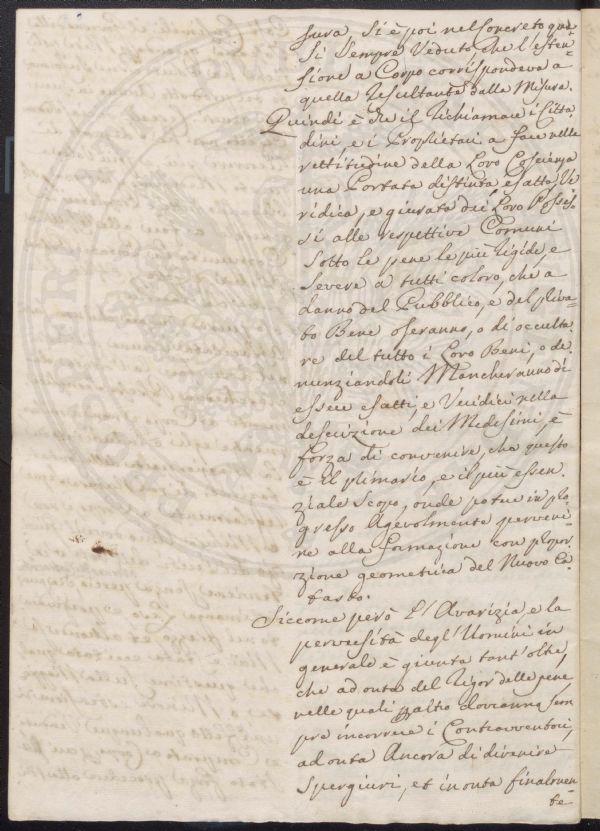 sura, si è poi nel concreto qua-
si sempre veduto che l'esten-
sione a Corpo corrispondeva a
quella resultante dalla Misura.
Quindi è che il richiamare i Citta
dini, e i Proprietari a fare nelle
rettitudine della Loro Coscienza
una Portata distinta esatta, Ve
ridica, e giurata dei Loro Posses
si alle respettive Comuni
sotto le pene le più rigide, e
severe a tutti coloro, che a
danno del Pubblico, e del priva-
to Bene oseranno, o di occulta
re del tutto i Loro Beni, o de-
nunziandoli Mancheranno di
essere esatti, e Veridici nella
descrizione dei Medesimi, è
forza di convenire, che questo
è il primario, e il più essen-
ziale scopo, onde potere in pro
gresso agevolmente perveni-
re alla formazione con propor
zione geometrica del Nuovo Ca
tasto.
Siccome però l'Avarizia, e la
perversità degl'Uomini in
generale è giunta tant'oltre,
che ad onta del rigor delle pene
nelle quali dovranno sem
pre incorrere i Contravventori,
ad onta Ancora di divenire
spergiuri, et in onta finalmen-
te